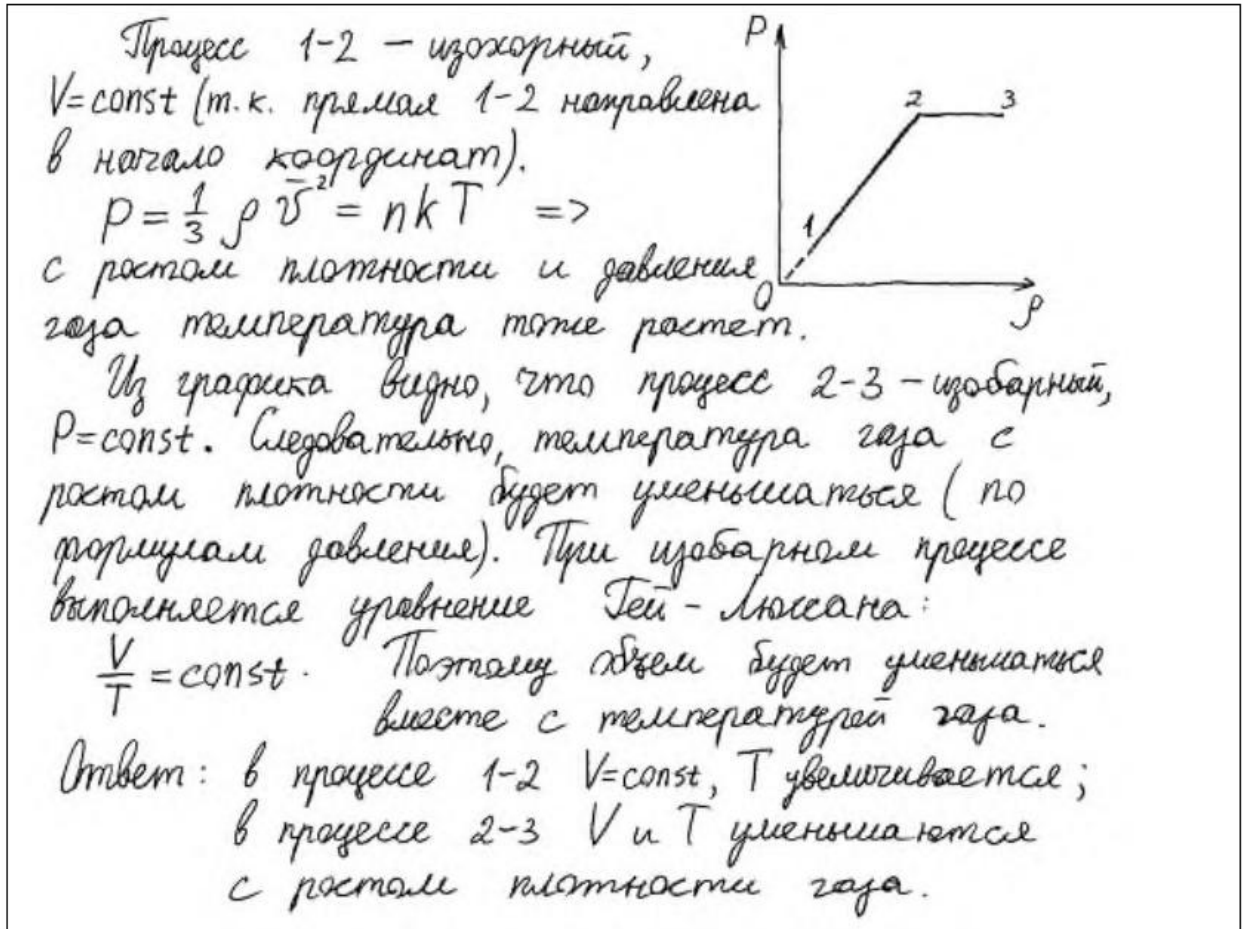 Процесс 1-2 – изохорный,
V=const (т.к. прямая 1-2 направлена
в начало координат).
p = 1/3 ρ v̄² = nkT =>
с ростом плотности и давления
газа температура тоже растет.
P
2
3
1
0
ρ
Из графика видно, что процесс 2-3 – изобарный,
P=const. Следовательно, температура газа с
ростом плотности будет уменьшаться (по
формулам давления). При изобарном процессе
выполняется уравнение Гей-Люссака:
V/T = const. Поэтому объем будет уменьшаться
вместе с температурой газа.
Ответ: в процессе 1-2 V=const, T увеличивается;
в процессе 2-3 V и T уменьшаются
с ростом плотности газа.